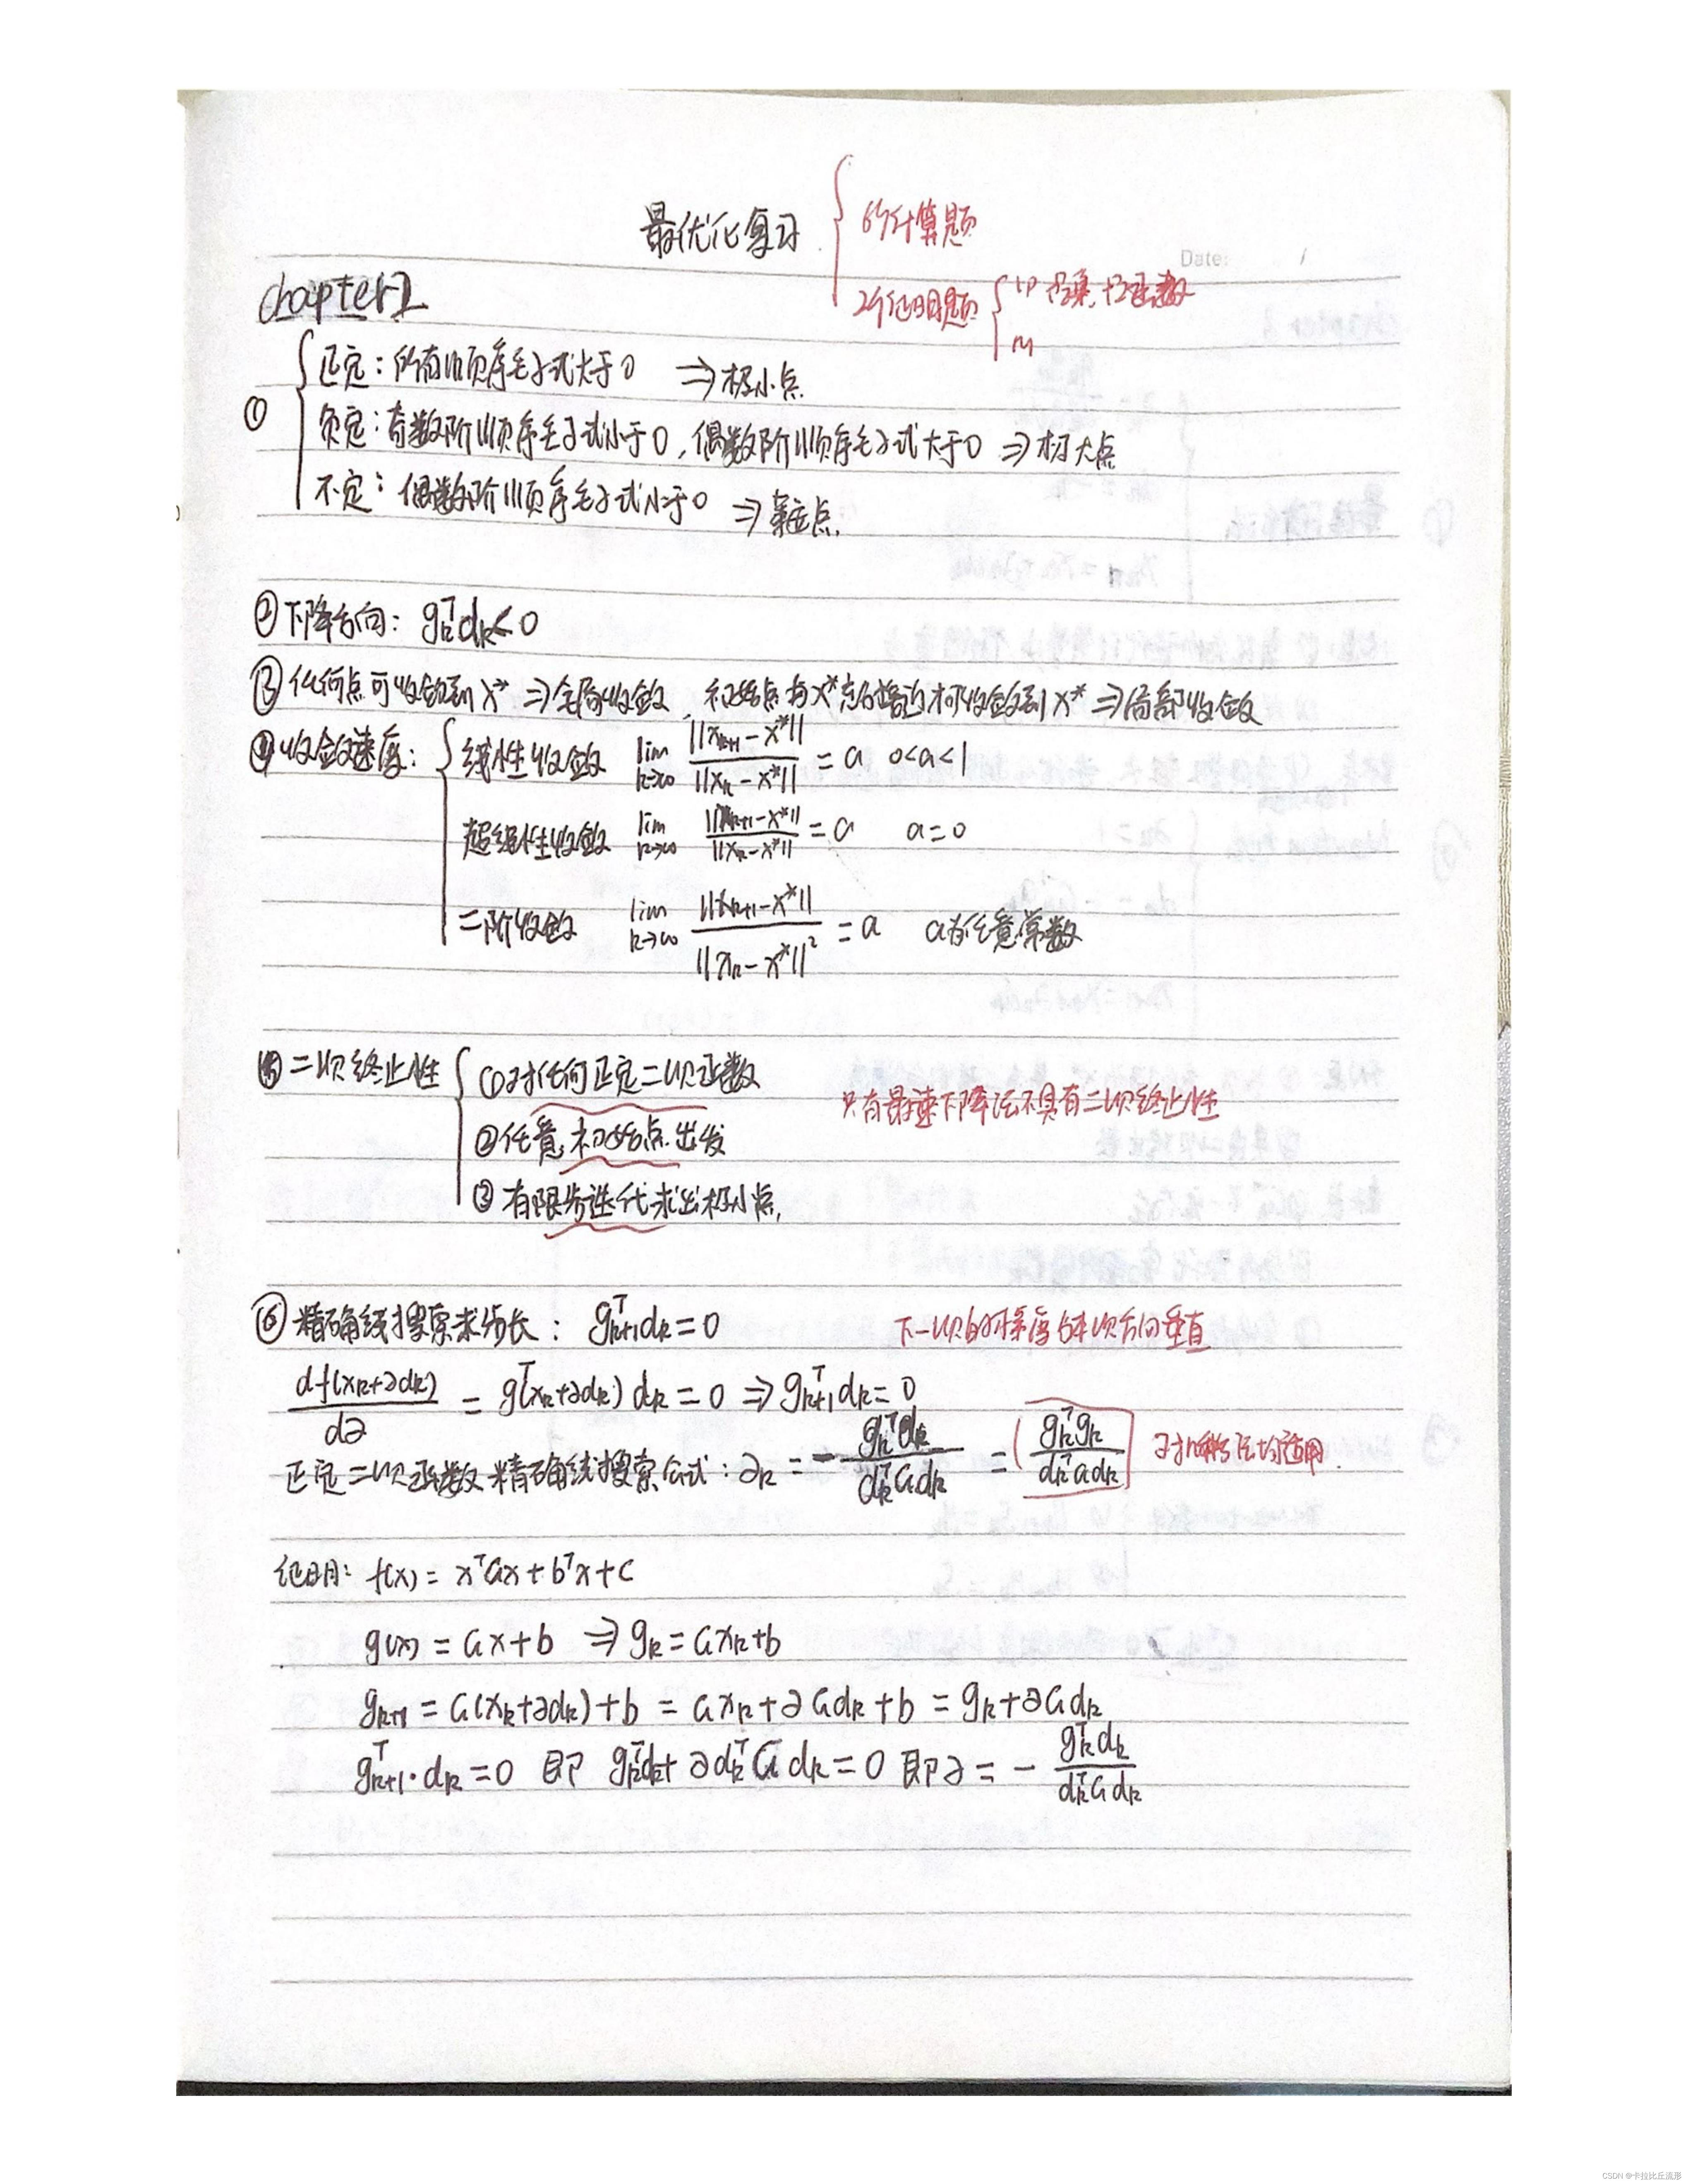 最优化复习
6个计算题
Date: /
2个证明题 (1) 凸集、凸函数
(2)
chapter1
① 正定:所有顺序主子式大于0 ⇒极小点
负定:奇数阶顺序主子式小于0,偶数阶顺序主子式大于0 ⇒极大点
不定:偶数阶顺序主子式小于0 ⇒鞍点.
②下降方向: gₖᵀdₖ<0
③任何点可收敛到x* ⇒全局收敛, 初始点与x*充分接近才可收敛到x* ⇒局部收敛
④收敛速度: 线性收敛 lim k→∞ ||xₖ₊₁-x*|| / ||xₖ-x*|| = a 0<a<1
超线性收敛 lim k→∞ ||xₖ₊₁-x*|| / ||xₖ-x*|| = a a=0
二阶收敛 lim k→∞ ||xₖ₊₁-x*|| / ||xₖ-x*||² = a a为任意常数
⑤二次终止性 ①对任何正定二次函数
只有最速下降法不具有二次终止性
②任意初始点出发
③有限步迭代求出极小点.
⑥精确线搜索求步长: gₖ₊₁ᵀdₖ=0 下一次的梯度与本次方向垂直
df(xₖ+∂dₖ) / d∂ = g(xₖ+∂dₖ)ᵀdₖ=0 ⇒gₖ₊₁ᵀdₖ=0
正定二次函数精确线搜索公式: ∂ₖ = - gₖᵀdₖ / dₖᵀGdₖ = gₖᵀgₖ / dₖᵀGdₖ 对几种方法均适用.
证明: f(x) = xᵀGx+bᵀx+c
g(x) = Gx+b ⇒gₖ=Gxₖ+b
gₖ₊₁ = G(xₖ+∂dₖ)+b = Gxₖ+∂Gdₖ+b = gₖ+∂Gdₖ
gₖ₊₁ᵀ·dₖ=0 即 gₖᵀdₖ+∂dₖᵀGdₖ=0 即∂ = - gₖᵀdₖ / dₖᵀGdₖ
CSDN @卡拉比丘流形